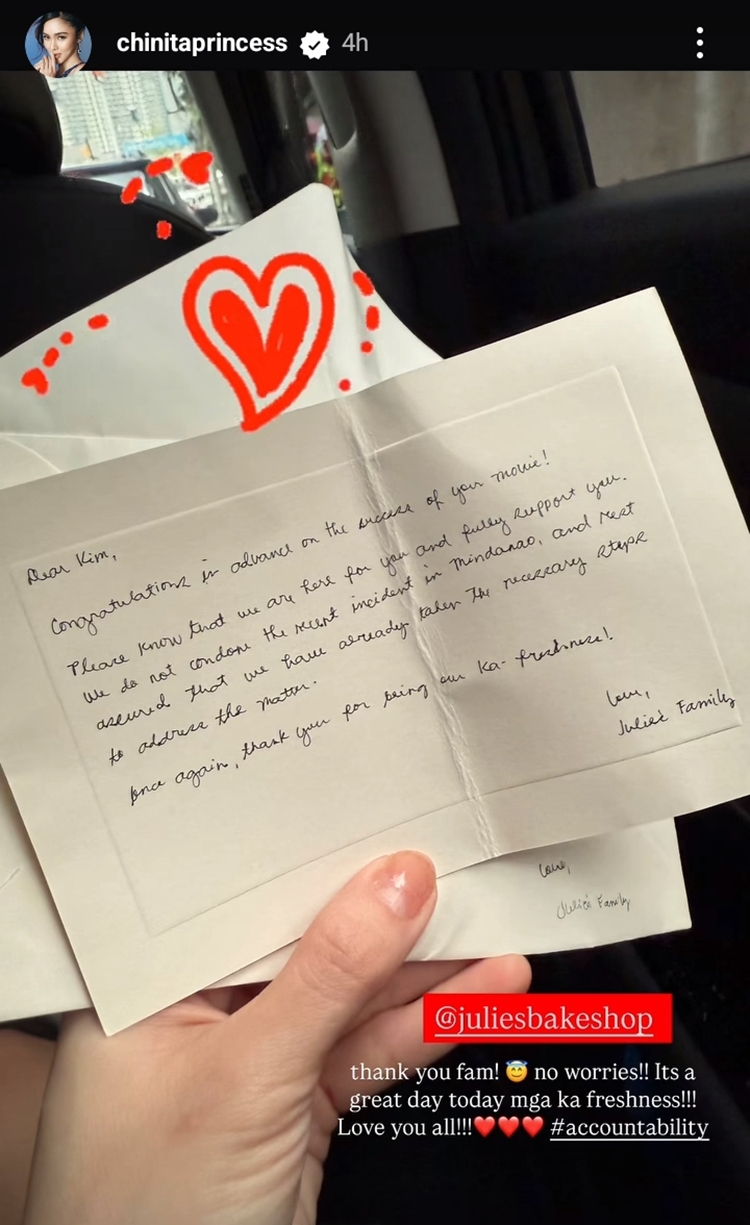 chinitaprincess 4h
Dear Kim,
Congratulations in advance on the success of your movie!
Please know that we are here for you and fully support you.
We do not condone the recent incident in Mindanao, and rest
assured that we have already taken the necessary steps
to address the matter.
Once again, thank you for being our Ka-freshness!
Love,
Julie's Family
Love,
Julie's Family
@juliesbakeshop
thank you fam! 😇 no worries!! Its a
great day today mga ka freshness!!!
Love you all!!!❤️❤️❤️ #accountability